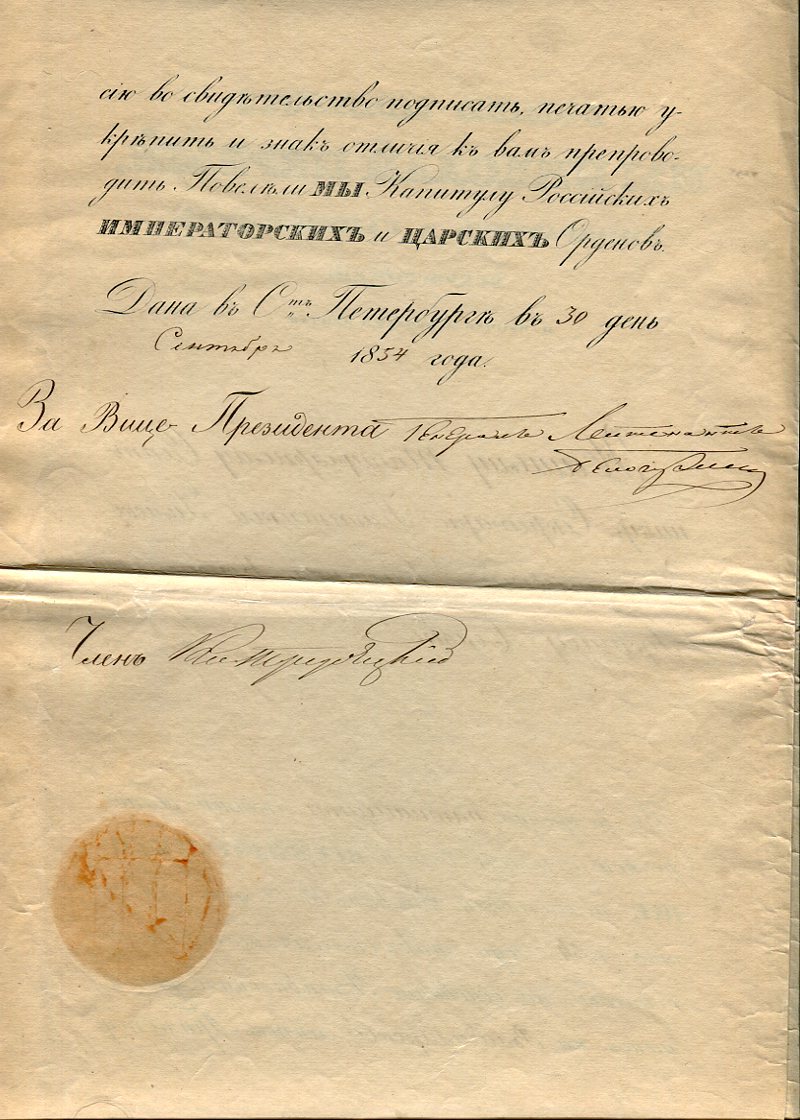 сію во свидѣтельство подписать, печатью у-
крѣпить и знакъ отличія къ вамъ препрово-
дить. Повелѣли МЫ Капитулу Россійскихъ
ИМПЕРАТОРСКИХЪ и ЦАРСКИХЪ Орденовъ.
Дана въ С.тъ Петербургѣ въ 30 день
Сентября 1854 года.
За Вице-Президента Генералъ Лейтенантъ
Членъ